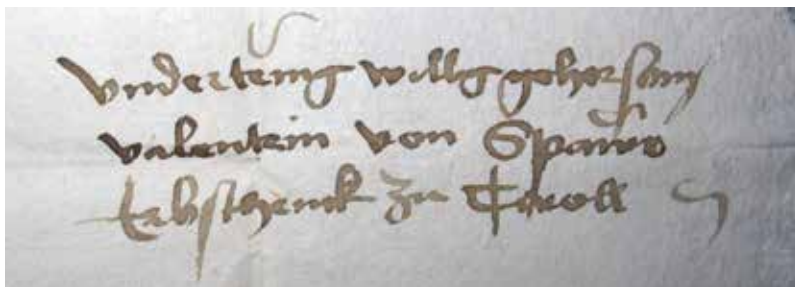 Undertenig willig gehorsam
Valentein von Spawr
Erbschenck zu Tiroll